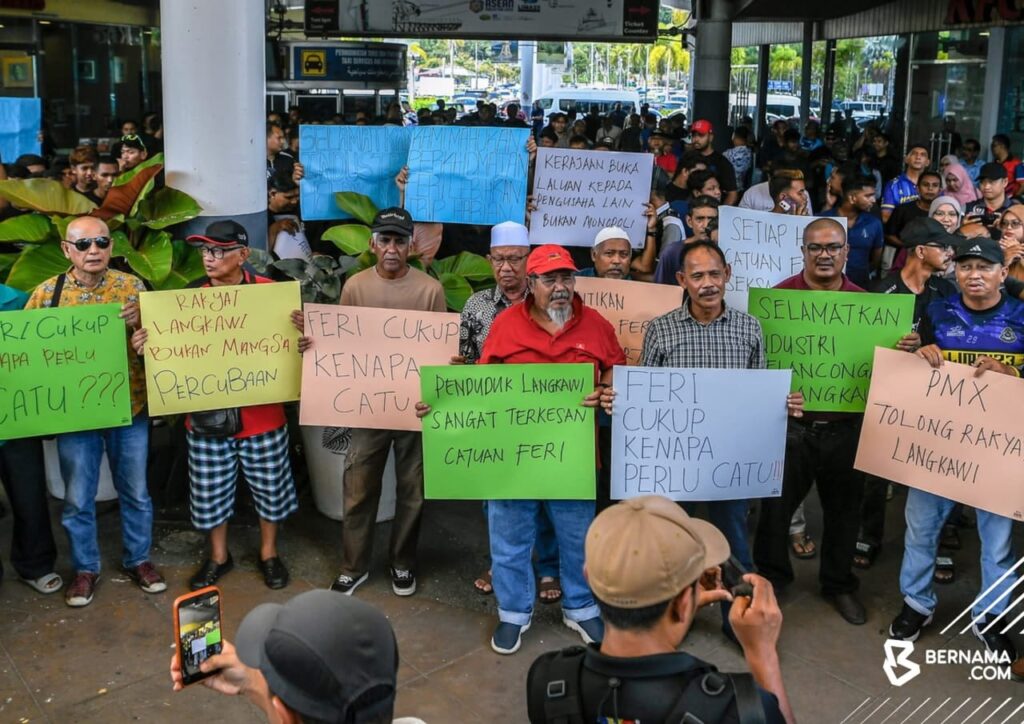 ASEAN
Ticket
Counter
KFC
FERI CUKUP
PERLU
CATU ???
RAKYAT
LANGKAWI
BUKAN MANGSA
PERCUBAAN
FERI CUKUP
KENAPA
CATU
SELAMATKAN
INDUSTRI
KERAJAAN BUKA
LALUAN KEPADA
PENGUSAHA LAIN
BUKAN MONOPOLI
PENDUDUK LANGKAWI
SANGAT TERKESAN
CATUAN FERI
FERI
CUKUP
KENAPA
PERLU CATU!!!
SETIAP
CATUAN
SELAMATKAN
INDUSTRI
PMX
TOLONG RAKYA
LANGKAWI
29
BERNAMA
.COM